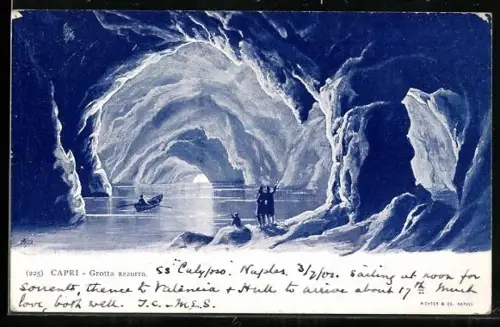 (225) CAPRI - Grotta azzurra. SS "Calypso". Naples. 3/2/02. Sailing at noon for
Sorrento, thence to Valencia & Hull to arrive about 17th. Much
love, both well. J.C. - M.E.S.
RICHTER & CO. NAPOLI